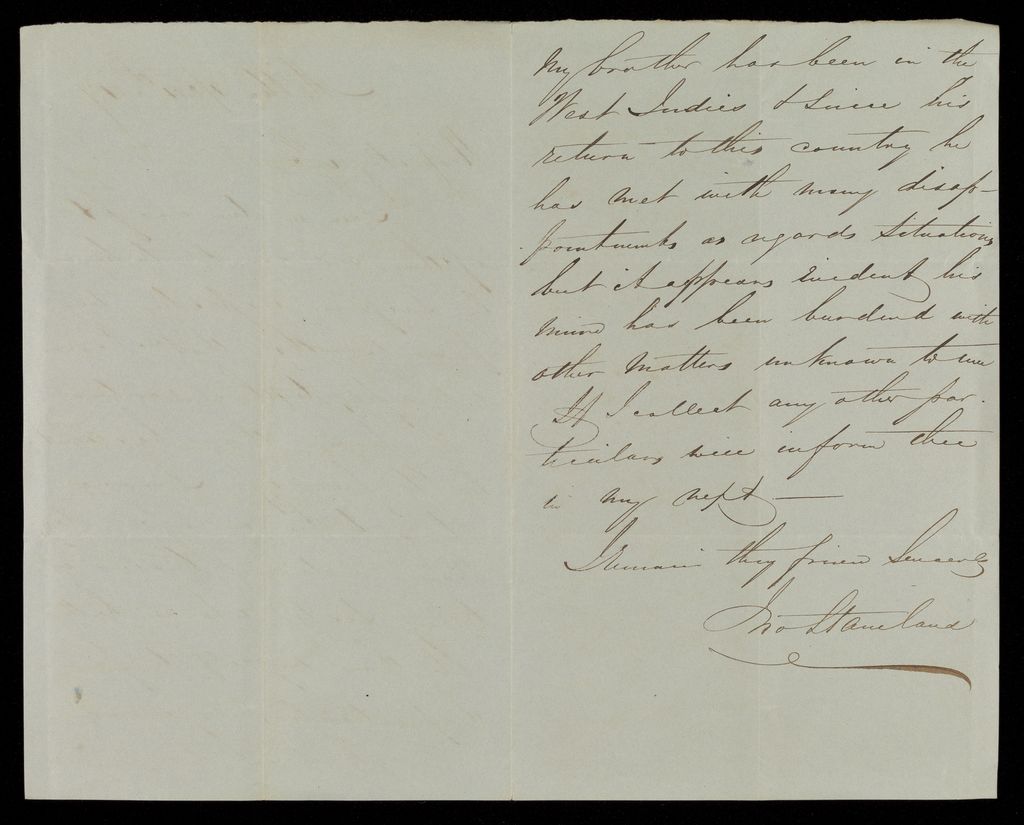 My brother has been in the
West Indies & Since his
return to this country he
has met with many disap-
pointments as regards Situations
but it appears evident his
mind has been burdend with
other matters unknown to me
If I collect any other par-
ticulars will inform thee
in my next —
I remain thy friend Sincerely
Jno Staneland